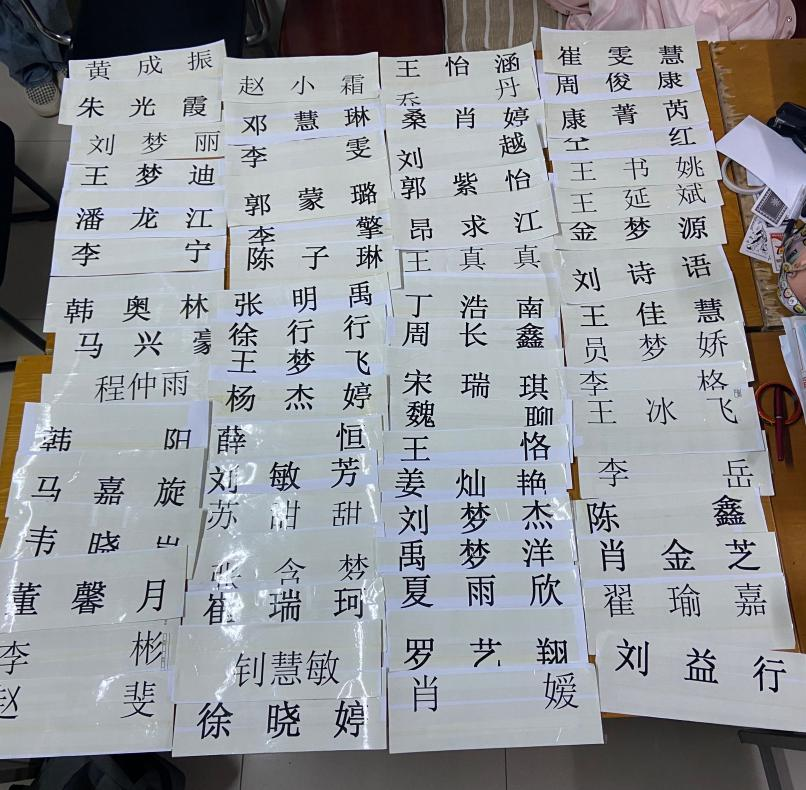 黄成振
朱光霞
刘梦丽
王梦迪
潘龙江
李宁
韩奥林
马兴豪
程仲雨
韩阳
马嘉旋
韦晓
董馨月
李彬
赵斐
赵小霜
邓慧琳
李雯
郭蒙璐
李擎
陈子琳
张明禹
徐行行
王梦飞
杨杰婷
薛恒
刘敏芳
苏甜甜
张含梦
崔瑞珂
钊慧敏
徐晓婷
王怡涵
丹
桑肖婷
刘越
郭紫怡
昂求江
王真真
丁浩南
周长鑫
宋瑞琪
魏聊
王恪
姜灿艳
刘梦杰
禹梦洋
夏雨欣
罗艺翔
肖媛
崔雯慧
周俊康
康菁芮
红
王书姚
王延斌
金梦源
刘诗语
王佳慧
员梦娇
李格
王冰飞
李岳
陈鑫
肖金芝
翟瑜嘉
刘益行